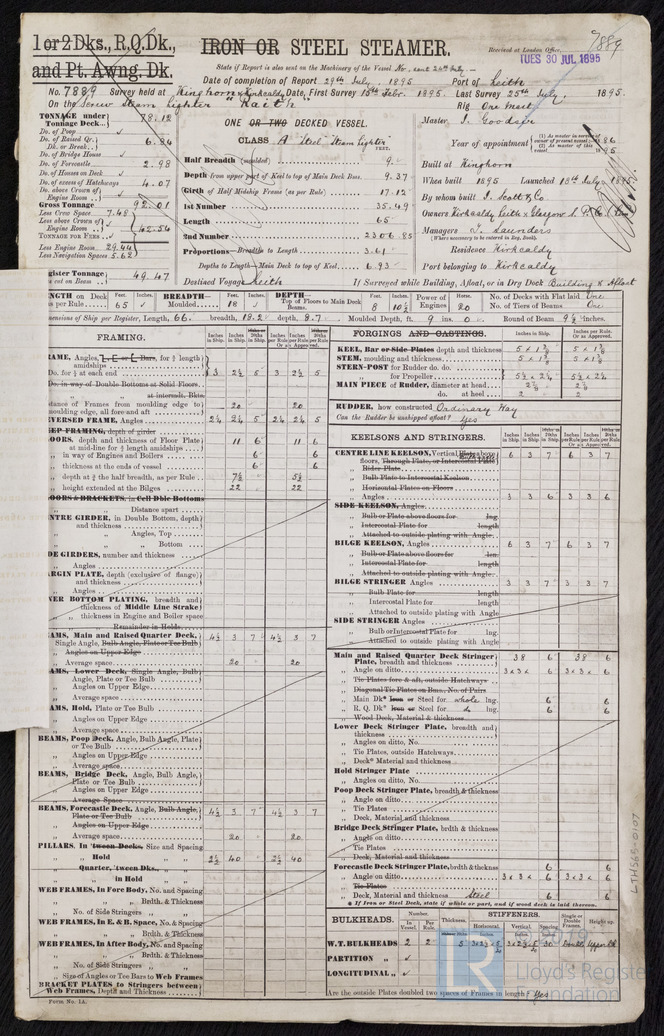 1 or 2 Dks., R.Q.Dk.,
and Pt. Awng. Dk.
IRON OR STEEL STEAMER.
Received at London Office,
7889
TUES 30 JUL 1895
State if Report is also sent on the Machinery of the Vessel No, sent 24th July
Date of completion of Report 29th July 1895 Port of Leith
No. 7889 Survey held at Kinghorn & Kirkcaldy Date, First Survey 15th Febr. 1895. Last Survey 25th July 1895.
On the Screw Steam Lighter "Raith" Rig One mast
TONNAGE under Tonnage Deck 78.12
Do. of Poop
Do. of Raised Qr. Dk. or Break 6.84
Do. of Bridge House
Do. of Forecastle 2.98
Do. of Houses on Deck
Do. of excess of Hatchways 4.07
Do. above Crown of Engine Room
Gross Tonnage 92.01
Less Crew Space 7.48
Less above Crown of Engine Room
42.54
TONNAGE FOR FEES
Less Engine Room 29.44
Less Navigation Spaces 5.62
Register Tonnage 49.47
ONE OR TWO DECKED VESSEL.
CLASS A "Steel" "Steam Lighter"
FEET.
Half Breadth (moulded) 9.
Depth from upper part of Keel to top of Main Deck Bms. 9.37
Girth of Half Midship Frame (as per Rule) 17.12
1st Number 35.49
Length 65
2nd Number 2306.85
Proportions—Breadths to Length 3.61
Depths to Length—Main Deck to top of Keel 6.93
Destined Voyage Leith
Master J. Goodsir
Year of appointment
Built at Kinghorn
When built 1895 Launched 18th July 1895
By whom built J. Scott & Co
Owners Kirkcaldy Leith & Glasgow S. P. Co
Managers J. Saunders
(Where necessary to be entered in Reg. Book).
Residence Kirkcaldy
Port belonging to Kirkcaldy
If Surveyed while Building, Afloat, or in Dry Dock Building & Afloat
LENGTH on Deck as per Rule 65
BREADTH— Moulded 18
DEPTH— Top of Floors to Main Deck Beams. 8 10½
Power of Engines 20 Horse.
No. of Decks with Flat laid One
No. of Tiers of Beams One
Dimensions of Ship per Register, Length, 66. breadth, 18.2 depth, 8.7 Moulded Depth, ft. 9 ins. 0 Round of Beam 9½ inches.
FRAMING.
Do. for ⅗ at each end 3 2½ 5 3 2½ 5
Do. in way of Double Bottoms at Solid Floors.
at intermdt. Bkts.
Distance of Frames from moulding edge to moulding edge, all fore and aft 20 20
REVERSED FRAME, Angles 2¼ 2¼ 5 2¼ 2¼ 5
DEEP FRAMING, depth of girder
FLOORS, depth and thickness of Floor Plate at mid-line for ½ length amidships 11 6 11 6
in way of Engines and Boilers 6 6
thickness at the ends of vessel 6 6
depth at ¾ the half breadth, as per Rule 7½ 5½
height extended at the Bilges 22 22
FLOORS & BRACKETS, in Cell Dble Bottoms
Distance apart
CENTRE GIRDER, in Double Bottom, depth and thickness
Angles, Top
Bottom
SIDE GIRDERS, number and thickness
Angles
MARGIN PLATE, depth (exclusive of flange) and thickness
Angles
INNER BOTTOM PLATING, breadth and thickness of Middle Line Strake
thickness in Engine and Boiler space
Remainder in Holds
BEAMS, Main and Raised Quarter Deck, Single Angle, Bulb Angle, Plate or Tee Bulb 4½ 3 7 4½ 3 7
Angles on Upper Edge
Average space 20 20
BEAMS, Lower Deck, Single Angle, Bulb Angle, Plate or Tee Bulb
Angles on Upper Edge
Average space
BEAMS, Hold, Plate or Tee Bulb
Angles on Upper Edge
Average space
BEAMS, Poop Deck, Angle, Bulb Angle, Plate or Tee Bulb
Angles on Upper Edge
Average space
BEAMS, Bridge Deck, Angle, Bulb Angle, Plate or Tee Bulb
Angles on Upper Edge
Average Space
BEAMS, Forecastle Deck, Angle, Bulb Angle, Plate or Tee Bulb 4½ 3 7 4½ 3 7
Angles on Upper Edge
Average space 20 20
PILLARS, In 'tween Decks, Size and Spacing
Hold 2½ 40 2½ 40
Quarter, 'tween Dks.,
in Hold
WEB FRAMES, In Fore Body, No. and Spacing
Brdth. & Thickness
No. of Side Stringers
WEB FRAMES, In E. & B. Space, No. & Spacing
Brdth. & Thickness
WEB FRAMES, In After Body, No. and Spacing
Brdth. & Thickness
No. of Side Stringers
Size of Angles or Tee Bars to Web Frames
BRACKET PLATES to Stringers between Web Frames, Depth and Thickness
Form No. 1A.
FORGINGS AND CASTINGS.
Inches in Ship. Inches per Rule. Or as Approved.
KEEL, Bar or Side Plates depth and thickness
STEM, moulding and thickness
STERN-POST for Rudder do. do.
for Propeller
MAIN PIECE of Rudder, diameter at head
do. at heel 2 2
RUDDER, how constructed Ordinary Way
Can the Rudder be unshipped afloat? Yes
KEELSONS AND STRINGERS.
CENTRE LINE KEELSON, Vertical Plate above floors, Through Plate, or Intercostal Plate 6 3 7 6 3 7
Rider Plate
Bulb Plate to Intercostal Keelson
Horizontal Plates on Floors
Angles 3 3 6 3 3 6
SIDE KEELSON, Angles
Bulb or Plate above floors for lng.
Intercostal Plate for length
Attached to outside plating with Angle
BILGE KEELSON, Angles 6 3 7 6 3 7
Bulb or Plate above floors for len.
Intercostal Plate for length
Attached to outside plating with Angle
BILGE STRINGER Angles 3 3 7 3 3 7
Bulb Plate for length
Intercostal Plate for length
Attached to outside plating with Angle
SIDE STRINGER Angles
Bulb or Intercostal Plate for lng.
Attached to outside plating with Angle
Main and Raised Quarter Deck Stringer Plate, breadth and thickness 38 6 38 6
Angle on ditto 3 x 3 x 6 3 x 3 x 6
Tie Plates fore & aft, outside Hatchways
Diagonal Tie Plates on Bms., No. of Pairs
Main Dk* Iron or Steel for whole lng. 6 6
R. Q. Dk* Iron or Steel for do lng. 6 6
Wood Deck, Material & thickness
Lower Deck Stringer Plate, breadth and thickness
Angles on ditto, No.
Tie Plates, outside Hatchways
Deck* Material and thickness
Hold Stringer Plate
Angles on ditto, No.
Poop Deck Stringer Plate, breadth & thickness
Angle on ditto
Tie Plates
Deck, Material and thickness
Bridge Deck Stringer Plate, brdth & thickness
Angle on ditto
Tie Plates
Deck, Material and thickness
Forecastle Deck Stringer Plate, brdth & thcknss 6 6
Angle on ditto 3 x 3 x 6 3 x 3 x 6
Tie Plates
Deck, Material and thickness Steel 6 6
* If Iron or Steel Deck, state if whole or part, and if wood deck is laid thereon.
BULKHEADS.
Number. In Vessel. Per Rule.
Thickness.
STIFFENERS. Horizontal. Vertical. Spacing.
Single or Double Frames.
Height up.
W.T. BULKHEADS 2 2 5 30 Double Upper Dk
PARTITION
LONGITUDINAL
Are the outside Plates doubled two spaces of Frames in length? Yes
LTHS69-0107
LR
© 2019
Lloyd's Register
Foundation